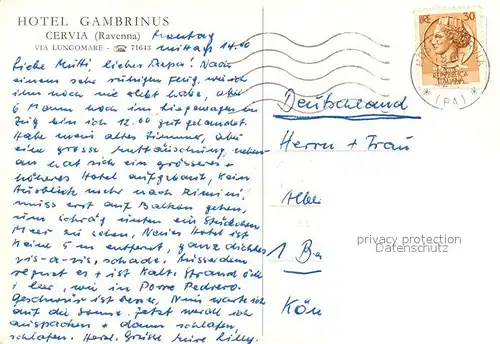 HOTEL GAMBRINUS
CERVIA (Ravenna)
VIA LUNGOMARE - ☎ 71643
Montag
mittag 14.00
Liebe Mutti, lieber Papa! Nach
einem sehr ruhigen Flug, wie ich
ihn noch nie erlebt habe, aber
6 Mann noch im Liegewagen im
Zug bin ich 12.00 gut gelandet.
Habe mein altes Zimmer, aber
eine grosse Enttäuschung, neben-
an hat sich ein grösseres +
höheres Hotel aufgebaut, kein
Ausblick mehr nach Rimini,
muss erst auf Balkon gehen,
um schräg unten ein Stückchen
Meer zu sehen. Neues Hotel ist
keine 5 m entfernt, ganz dichtes
vis-a-vis, schade. Ausserdem
regnet es + ist kalt. Strand öd
+ leer, wie in Porre Pedrero.
Geschwür ist besser. Nun warte ich
auf die Sonne. Jetzt werd ich
auspacken + dann schlafen,
schlafen. Herzl. Grüsse Eure Lilly.
LIRE 30
REPUBBLICA
ITALIANA
* (RA) *
Deutschland
Herrn + Frau
Albe
1 Be
Kön
privacy protection